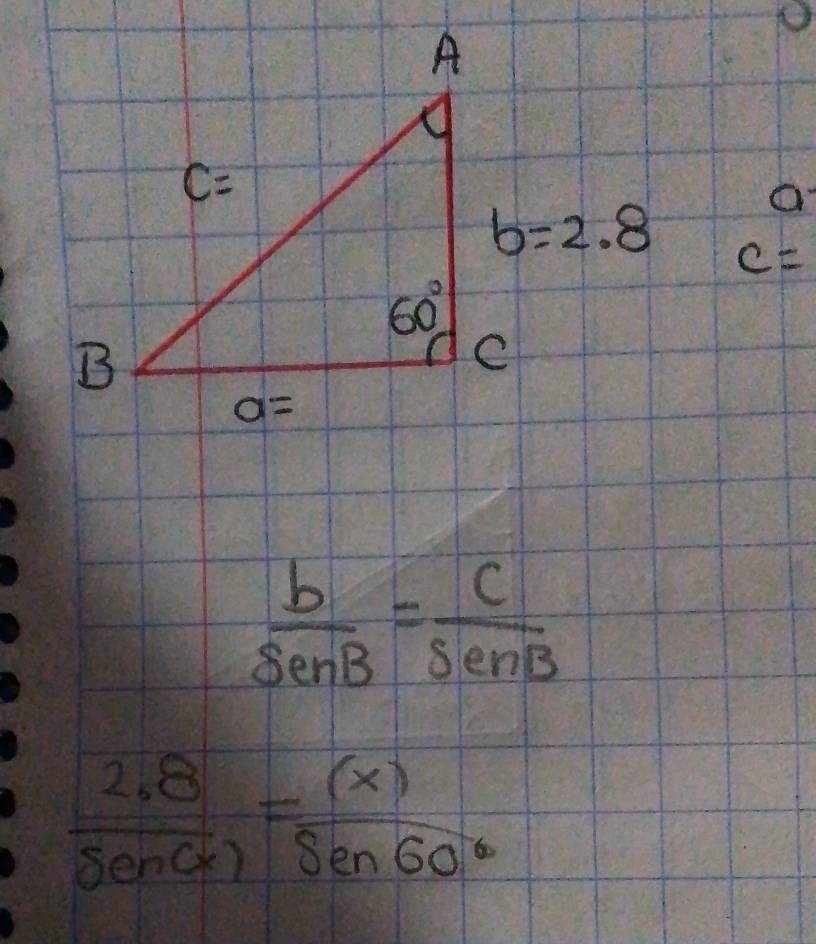 A
C=
b=2.8
a
c=
60°
B
C
a=
b/SenB = C/SenB
2.8/Sen(x) = (x)/Sen 60°